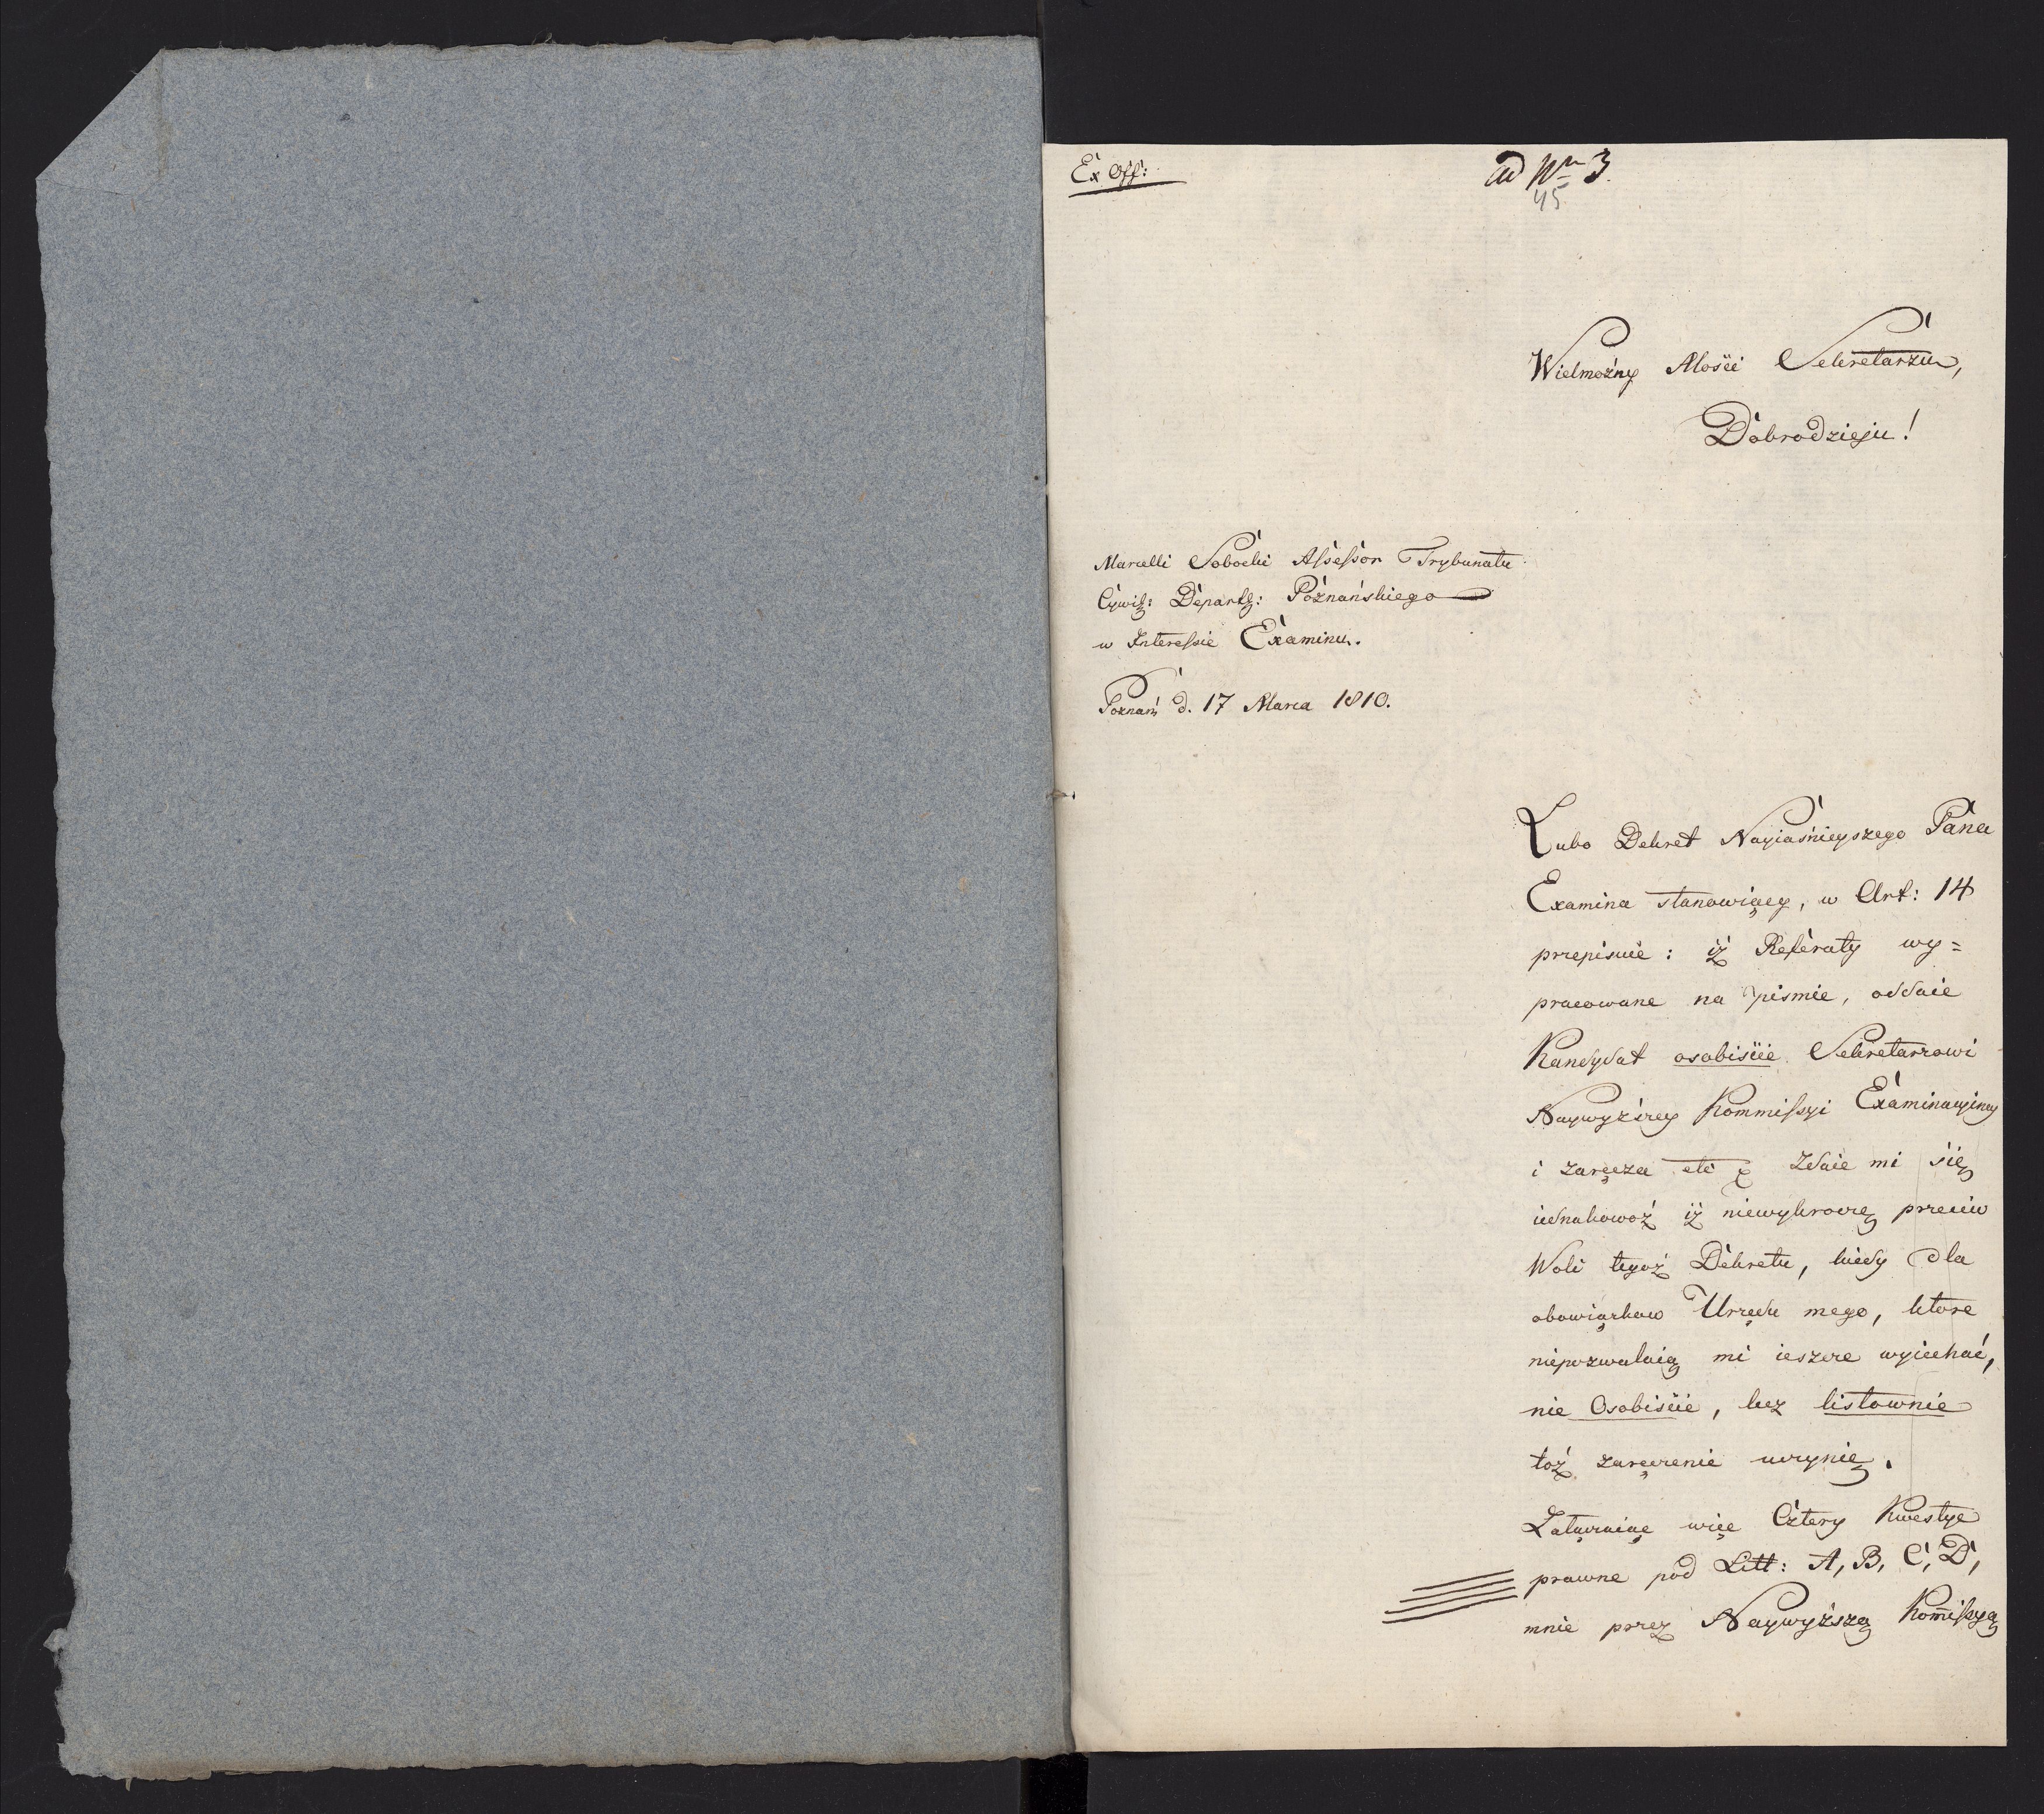 Ex Off:
ad Nrn 3.
45
Wielmożny Mości Sekretarzu,
Dobrodzieju!
Marcelli Sobocki Assessor Trybunału
Cywil: Depart: Poznańskiego
w Interessie Examinu.
Poznań d. 17 Marca 1810.
Lubo Dekret Nayiaśnieyszego Pana
Examina stanowiący, w Art: 14
przepisuie: iż Referaty wy=
pracowane na piśmie, oddaie
Kandydat osobiście Sekretarzowi
Naywyższey Kommissyi Examinacyiney
i zaręcza etc zdaie mi się
iednakowoż iż niewykroczę przeciw
Woli tegoż Dekretu, kiedy dla
obowiązkow Urzędu mego, ktore
niepozwalaią mi ieszcze wyiechać,
nie Osobiście, lecz listownie
toż zaręczenie uczynię.
Załączaiąc więc Cztery Kwestye
prawne pod Litt: A, B, C, D,
mnie przez Naywyższą Kommissyą